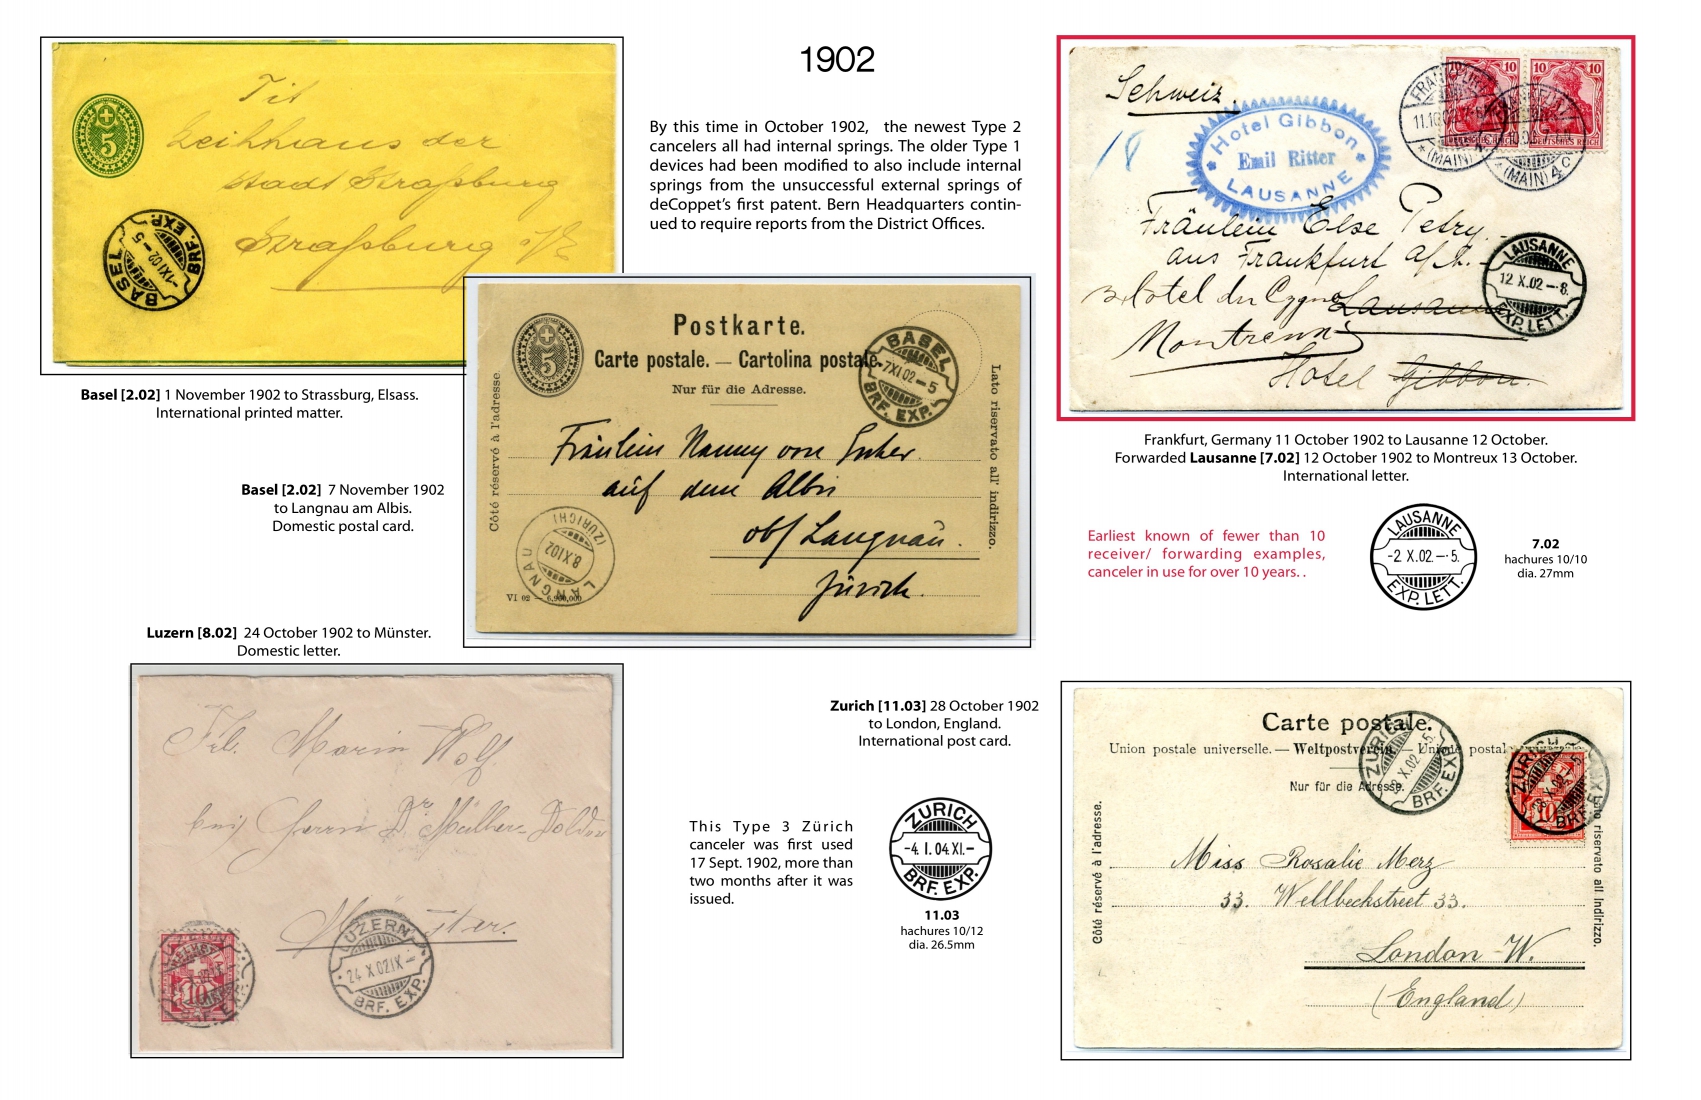 1902
By this time in October 1902, the newest Type 2
cancelers all had internal springs. The older Type 1
devices had been modified to also include internal
springs from the unsuccessful external springs of
deCoppet's first patent. Bern Headquarters contin-
ued to require reports from the District Offices.
5
Tit
Leihhaus der
Stadt Straßburg
Straßburg i/E
BASEL
-7 XI 02 – 5
BRF. EXP.
Basel [2.02] 1 November 1902 to Strassburg, Elsass.
International printed matter.
Basel [2.02] 7 November 1902
to Langnau am Albis.
Domestic postal card.
5
Postkarte.
Carte postale. — Cartolina postale.
Nur für die Adresse.
Côté réservé à l'adresse.
Lato riservato all' indirizzo.
BASEL
-7 XI 02 – 5
BRF. EXP.
Fräulein Nanny von
auf dem Albis
ob/ Langnau.
Zürich.
LANGNAU
8.XI 02
(ZURICH)
VI 02 — 6,900,000
Schweiz
18
Hotel Gibbon
Emil Ritter
LAUSANNE
FRANKFURT
11.10.02
*(MAIN)
10 10
DEUTSCHES REICH
*(MAIN) 4 C
Fräulein Else Petry
aus Frankfurt a/M.
Hotel du Cygne Lausanne
Montreux
Hotel Gibbon.
LAUSANNE
12 X.02 –·8.
EXP. LETT.
Frankfurt, Germany 11 October 1902 to Lausanne 12 October.
Forwarded Lausanne [7.02] 12 October 1902 to Montreux 13 October.
International letter.
Earliest known of fewer than 10
receiver/ forwarding examples,
canceler in use for over 10 years. .
LAUSANNE
-2 X.02.–·5.
EXP. LETT.
7.02
hachures 10/10
dia. 27mm
Luzern [8.02] 24 October 1902 to Münster.
Domestic letter.
Frl. Marie Wolf.
bei Herrn Dr Müller-Dolder
Münster.
10
LUZERN
24 X.02 IX –
BRF. EXP.
Zurich [11.03] 28 October 1902
to London, England.
International post card.
This Type 3 Zürich
canceler was first used
17 Sept. 1902, more than
two months after it was
issued.
ZÜRICH
-4. I. 04. XI.–
BRF. EXP.
11.03
hachures 10/12
dia. 26.5mm
Carte postale.
Union postale universelle. — Weltpostverein. — Unione postale
Nur für die Adresse.
Côté réservé à l'adresse.
Lato riservato all indirizzo.
ZÜRICH
28 X.02.–5.
BRF. EXP.
ZÜRICH
10
BRF. EXP.
Miss Rosalie Merz
33. Wellbeckstreet 33.
London W.
(England)